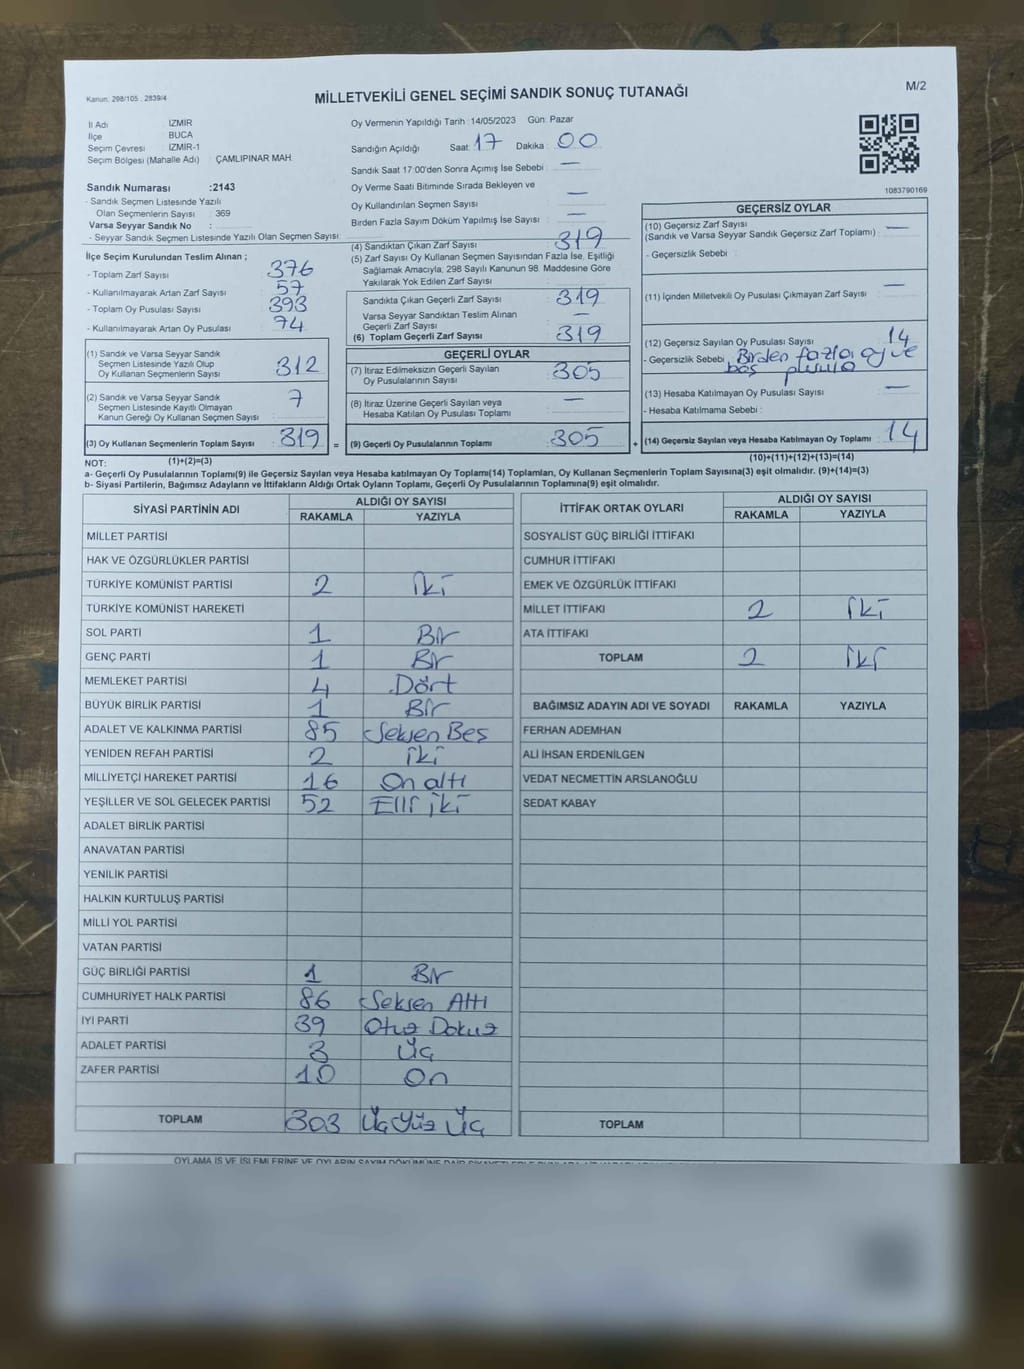 Kanun: 298/105 , 2839/4
MİLLETVEKİLİ GENEL SEÇİMİ SANDIK SONUÇ TUTANAĞI
M/2
İl Adı : İZMİR
İlçe : BUCA
Seçim Çevresi : İZMİR-1
Seçim Bölgesi (Mahalle Adı) : ÇAMLIPINAR MAH.
Sandık Numarası :2143
- Sandık Seçmen Listesinde Yazılı
Olan Seçmenlerin Sayısı : 369
Varsa Seyyar Sandık No :
- Seyyar Sandık Seçmen Listesinde Yazılı Olan Seçmen Sayısı:
Oy Vermenin Yapıldığı Tarih :14/05/2023 Gün: Pazar
Sandığın Açıldığı Saat: 17 Dakika : 00
Sandık Saat 17:00'den Sonra Açımış İse Sebebi : —
Oy Verme Saati Bitiminde Sırada Bekleyen ve
Oy Kullandırılan Seçmen Sayısı : —
Birden Fazla Sayım Döküm Yapılmış İse Sayısı : —
1083790169
İlçe Seçim Kurulundan Teslim Alınan ;
- Toplam Zarf Sayısı : 376
- Kullanılmayarak Artan Zarf Sayısı : 57
- Toplam Oy Pusulası Sayısı : 393
- Kullanılmayarak Artan Oy Pusulası : 74
(1) Sandık ve Varsa Seyyar Sandık
Seçmen Listesinde Yazılı Olup
Oy Kullanan Seçmenlerin Sayısı : 312
(2) Sandık ve Varsa Seyyar Sandık
Seçmen Listesinde Kayıtlı Olmayan
Kanun Gereği Oy Kullanan Seçmen Sayısı : 7
(3) Oy Kullanan Seçmenlerin Toplam Sayısı : 319 =
(1)+(2)=(3)
(4) Sandıktan Çıkan Zarf Sayısı : 319
(5) Zarf Sayısı Oy Kullanan Seçmen Sayısından Fazla İse, Eşitliği
Sağlamak Amacıyla, 298 Sayılı Kanunun 98. Maddesine Göre
Yakılarak Yok Edilen Zarf Sayısı :
Sandıkta Çıkan Geçerli Zarf Sayısı : 319
Varsa Seyyar Sandıktan Teslim Alınan
Geçerli Zarf Sayısı : —
(6) Toplam Geçerli Zarf Sayısı : 319
GEÇERLİ OYLAR
(7) İtiraz Edilmeksizin Geçerli Sayılan
Oy Pusulalarının Sayısı : 305
(8) İtiraz Üzerine Geçerli Sayılan veya
Hesaba Katılan Oy Pusulası Toplamı :
(9) Geçerli Oy Pusulalarının Toplamı : 305 +
GEÇERSİZ OYLAR
(10) Geçersiz Zarf Sayısı
(Sandık ve Varsa Seyyar Sandık Geçersiz Zarf Toplamı) : —
- Geçersizlik Sebebi :
(11) İçinden Milletvekili Oy Pusulası Çıkmayan Zarf Sayısı : —
(12) Geçersiz Sayılan Oy Pusulası Sayısı : 14
- Geçersizlik Sebebi : Birden fazla oy ve
boş pusula
(13) Hesaba Katılmayan Oy Pusulası Sayısı : —
- Hesaba Katılmama Sebebi :
(14) Geçersiz Sayılan veya Hesaba Katılmayan Oy Toplamı : 14
(10)+(11)+(12)+(13)=(14)
NOT:
a- Geçerli Oy Pusulalarının Toplamı(9) ile Geçersiz Sayılan veya Hesaba katılmayan Oy Toplamı(14) Toplamları, Oy Kullanan Seçmenlerin Toplam Sayısına(3) eşit olmalıdır. (9)+(14)=(3)
b- Siyasi Partilerin, Bağımsız Adayların ve İttifakların Aldığı Ortak Oyların Toplamı, Geçerli Oy Pusulalarının Toplamına(9) eşit olmalıdır.
SİYASİ PARTİNİN ADI ALDIĞI OY SAYISI
RAKAMLA YAZIYLA
MİLLET PARTİSİ
HAK VE ÖZGÜRLÜKLER PARTİSİ
TÜRKİYE KOMÜNİST PARTİSİ 2 İki
TÜRKİYE KOMÜNİST HAREKETİ
SOL PARTİ 1 Bir
GENÇ PARTİ 1 Bir
MEMLEKET PARTİSİ 4 Dört
BÜYÜK BİRLİK PARTİSİ 1 Bir
ADALET VE KALKINMA PARTİSİ 85 Seksen Beş
YENİDEN REFAH PARTİSİ 2 İki
MİLLİYETÇİ HAREKET PARTİSİ 16 On altı
YEŞİLLER VE SOL GELECEK PARTİSİ 52 Elli iki
ADALET BİRLİK PARTİSİ
ANAVATAN PARTİSİ
YENİLİK PARTİSİ
HALKIN KURTULUŞ PARTİSİ
MİLLİ YOL PARTİSİ
VATAN PARTİSİ
GÜÇ BİRLİĞİ PARTİSİ 1 Bir
CUMHURİYET HALK PARTİSİ 86 Seksen Altı
İYİ PARTİ 39 Otuz Dokuz
ADALET PARTİSİ 3 Üç
ZAFER PARTİSİ 10 On
TOPLAM 303 Üç Yüz Üç
İTTİFAK ORTAK OYLARI ALDIĞI OY SAYISI
RAKAMLA YAZIYLA
SOSYALİST GÜÇ BİRLİĞİ İTTİFAKI
CUMHUR İTTİFAKI
EMEK VE ÖZGÜRLÜK İTTİFAKI
MİLLET İTTİFAKI 2 İki
ATA İTTİFAKI
TOPLAM 2 İki
BAĞIMSIZ ADAYIN ADI VE SOYADI RAKAMLA YAZIYLA
FERHAN ADEMHAN
ALİ İHSAN ERDENİLGEN
VEDAT NECMETTİN ARSLANOĞLU
SEDAT KABAY
TOPLAM